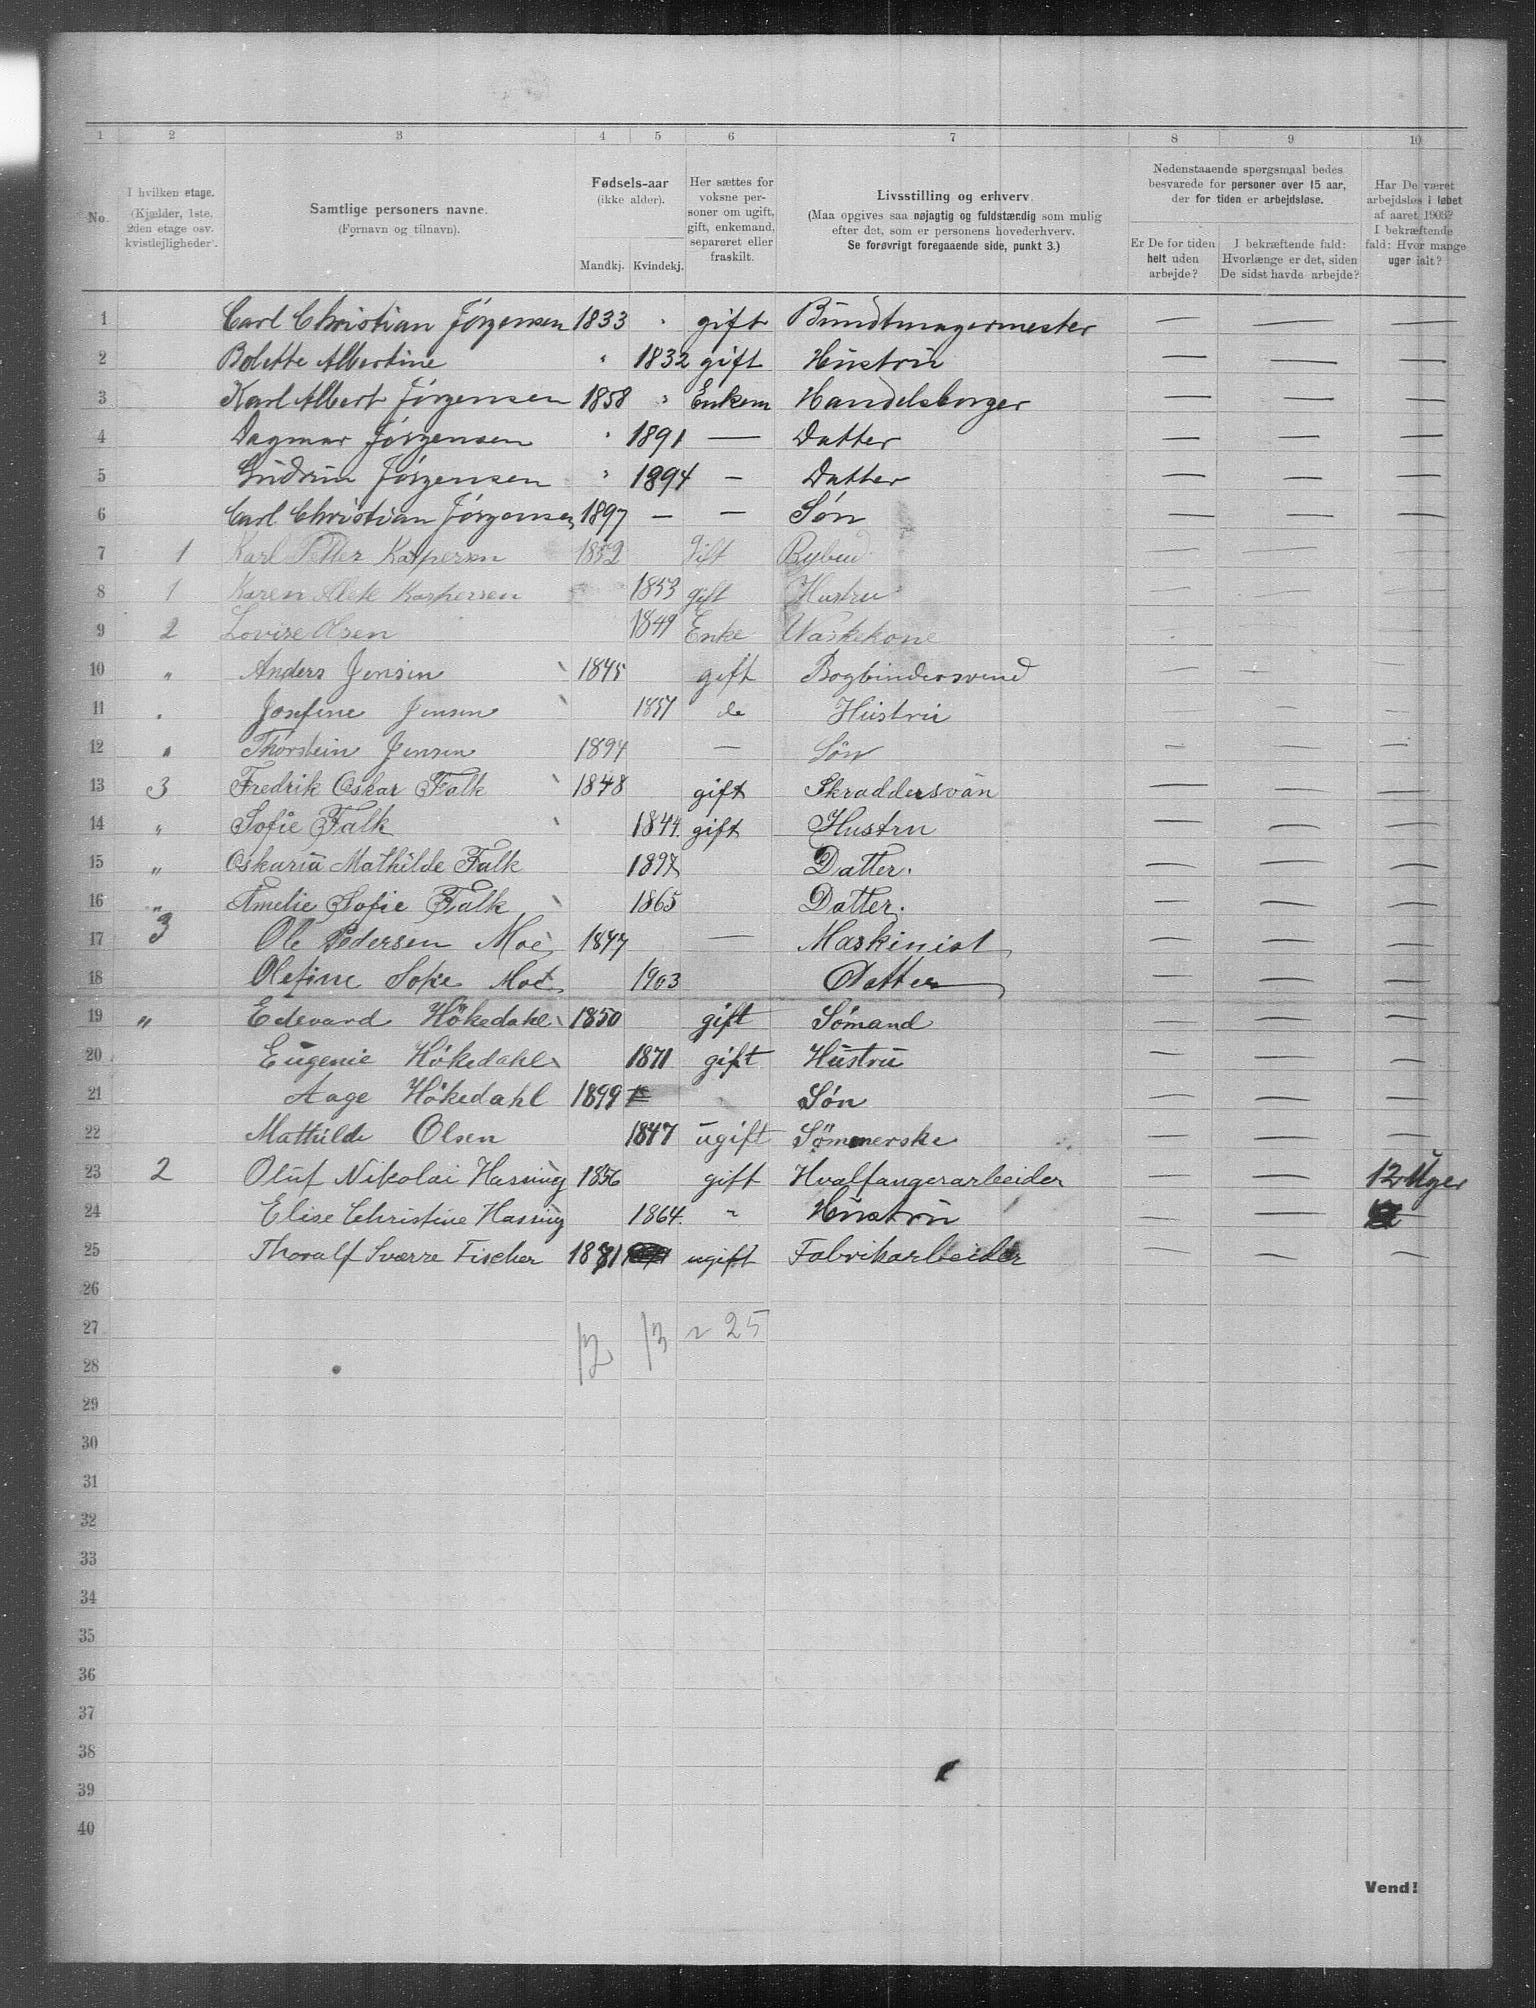 1 2 3 4 5 6 7 8 9 10
No.
I hvilken etage.
(Kjælder, 1ste,
2den etage osv.
kvistlejligheder).
Samtlige personers navne.
(Fornavn og tilnavn).
Fødsels-aar
(ikke alder).
Mandkj. Kvindekj.
Her sættes for
voksne per-
soner om ugift,
gift, enkemand,
separeret eller
fraskilt.
Livsstilling og erhverv.
(Maa opgives saa nøjagtig og fuldstærdig som mulig
efter det, som er personens hovederhverv.
Se forøvrigt foregaaende side, punkt 3.)
Nedenstaaende spørgsmaal bedes
besvarede for personer over 15 aar,
der for tiden er arbejdsløse.
Er De for tiden
helt uden
arbejde?
I bekræftende fald:
Hvorlænge er det, siden
De sidst havde arbejde?
Har De været
arbejdsløs i løbet
af aaret 1903?
I bekræftende
fald: Hvor mange
uger ialt?
1 Carl Christian Jörgensen 1833 " gift Bundtmagermester — — —
2 Bolette Albertine " 1832 gift Hustru — — —
3 Karl Albert Jörgensen 1858 " Enkem Handelsborger — — —
4 Dagmar Jörgensen " 1891 — Datter — — —
5 Gudrun Jörgensen " 1894 — Datter — — —
6 Carl Christian Jörgensen 1897 — — Sön — — —
7 1 Karl Petter Kaspersen 1852 Gift Bybud — — —
8 1 Karen Alete Kaspersen 1853 gift Hustru — — —
9 2 Lovise Olsen 1849 Enke Vaskekone — — —
10 " Anders Jensen 1845 gift Bogbindersvend — — —
11 " Josefine Jensen 1857 do Hustru — —
12 " Thorstein Jensen 1894 — Sön — — —
13 3 Fredrik Oskar Falk 1848 gift Skraddersvän — — —
14 " Sofie Falk 1844. gift Hustru — — —
15 " Oskaria Mathilde Falk 1897 Datter. — — —
16 " Amelie Sofie Falk 1865 Datter. — — —
17 3 Ole Pedersen Moe 1847 — Maskinist — — —
18 Olefine Sofie Moe 1903 Datter — — —
19 " Edevard Hökedahl 1850 gift Sömand — — —
20 Eugenie Hökedahl 1871 gift Hustru — — —
21 Aage Hökedahl 1899 Sön — — —
22 Mathilde Olsen 1847 ugift Sömmerske — — —
23 2 Oluf Nikolai Hassing 1856 gift Hvalfangerarbeider — — 12 Uger
24 Elise Christine Hassing 1864. " Hustru — — —
25 Thoralf Sverre Fischer 1881 ugift Fabrikarbeider — — —
26
27 12 13 ~ 25
28
29
30
31
32
33
34
35
36
37
38
39
40
Vend!